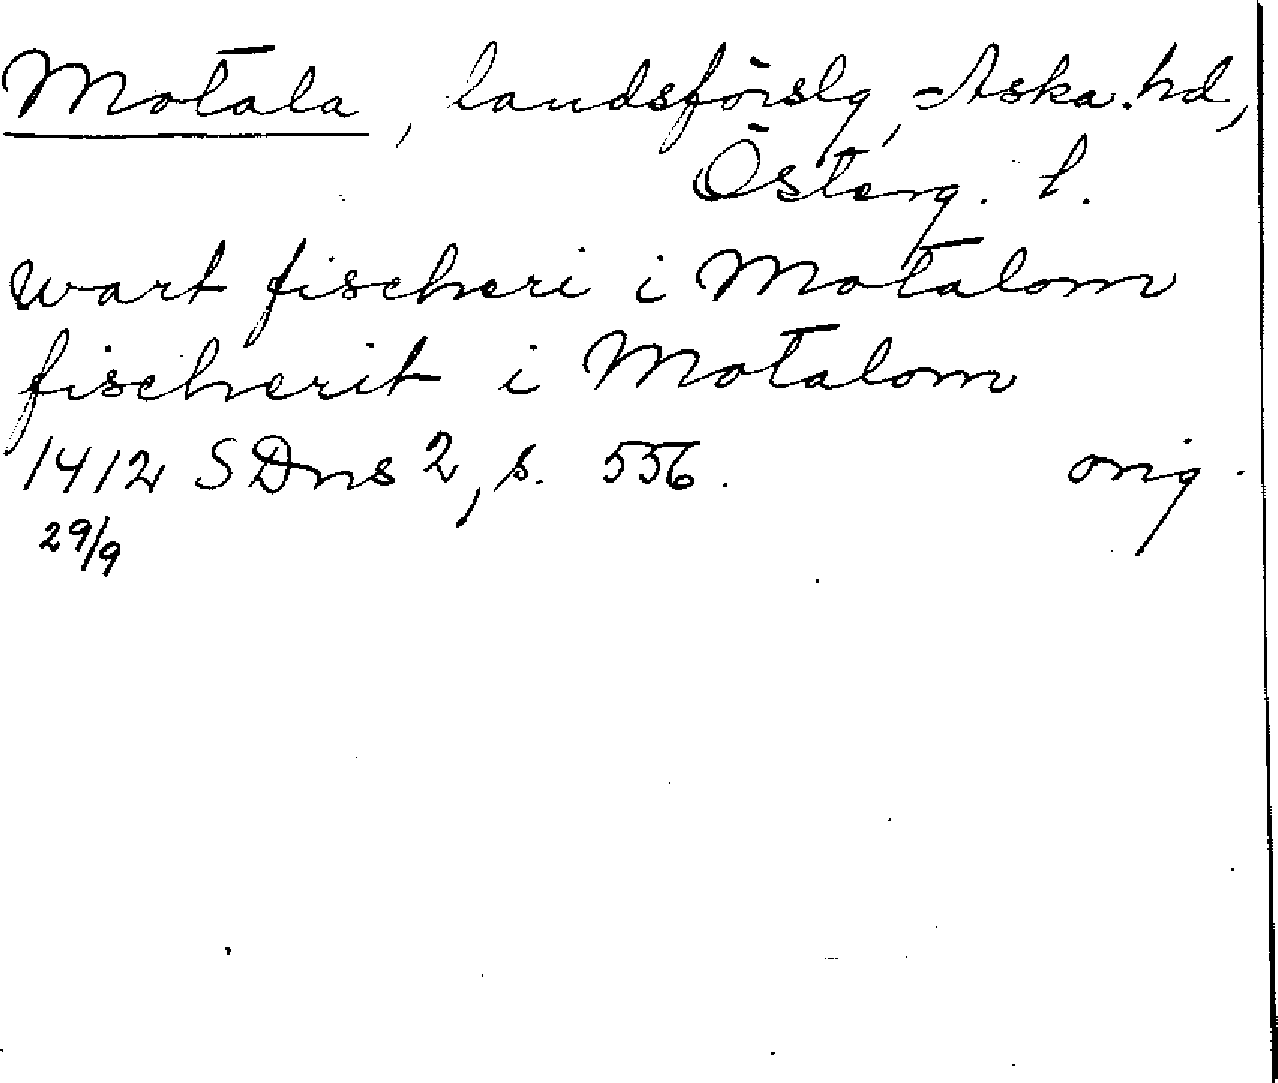 Motala, landsförslg, Aska hd,
Österg. l.
wart fischeri i Motalom
fischerit i Motalom
1412 SDns 2, s. 556. orig.
29/9